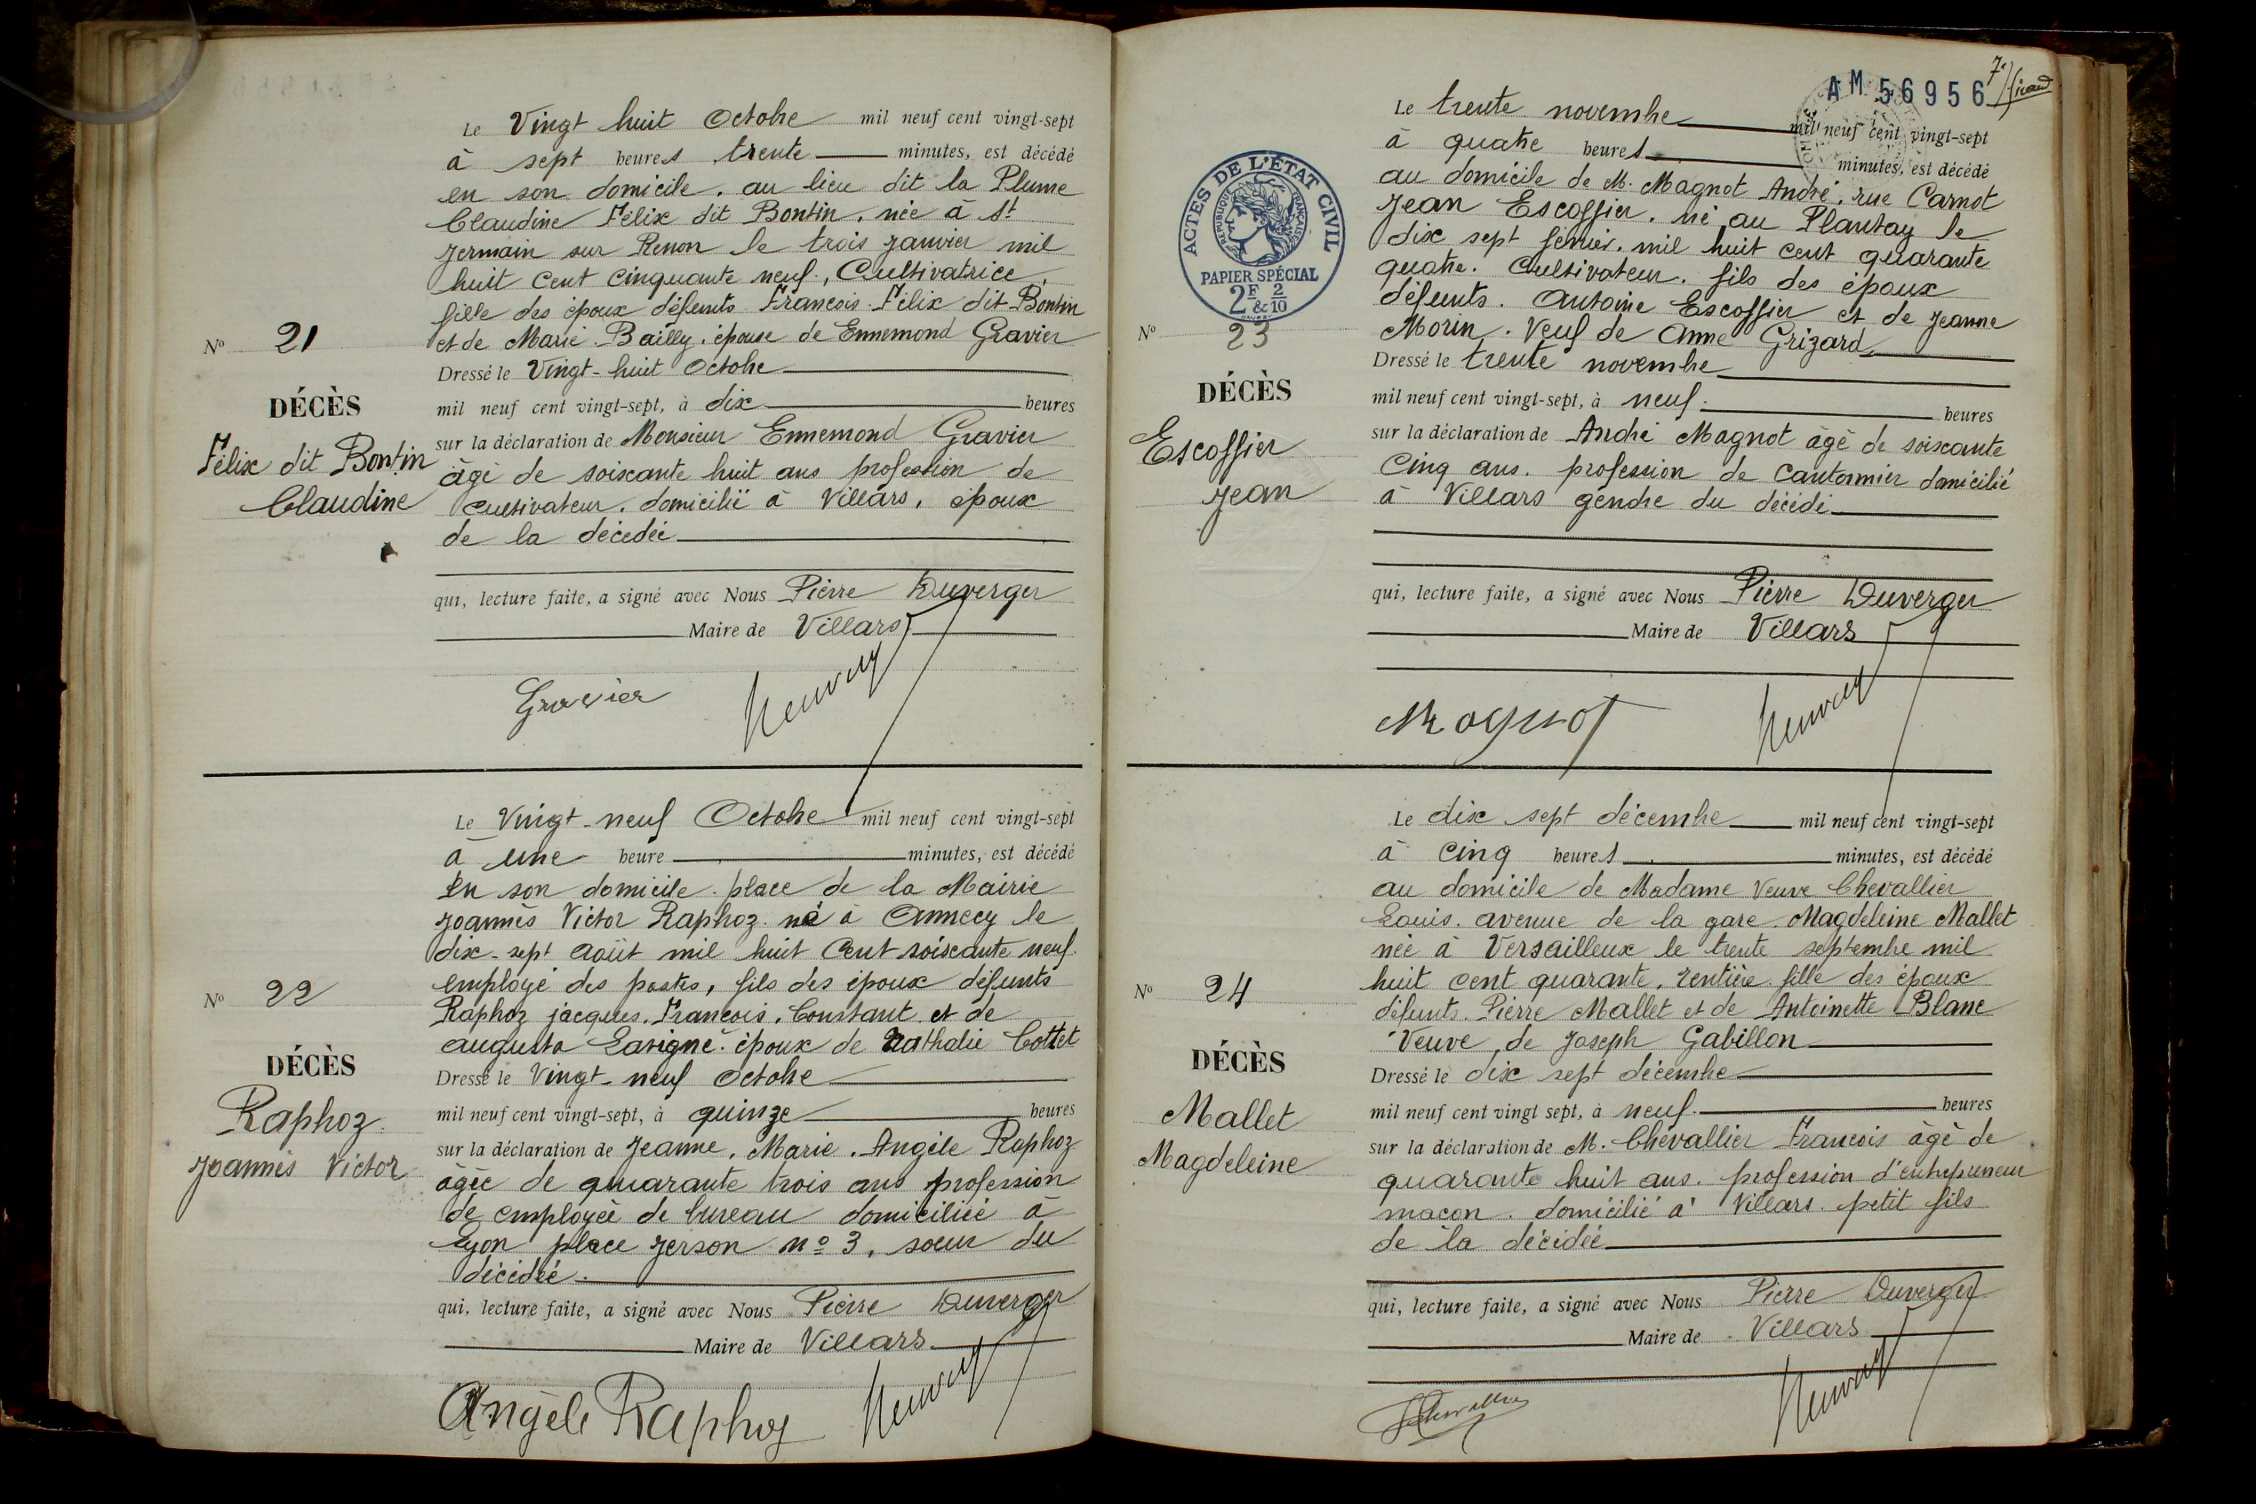 Le Vingt huit Octobre mil neuf cent vingt-sept
à sept heures trente minutes, est décédé
en son domicile. au lieu dit la Plume
Claudine Félix dit Bontin. née à St
Germain sur Renon le trois janvier mil
huit cent cinquante neuf, Cultivatrice,
fille des époux défunts Francois Félix dit Bontin
et de Marie Bailly. épouse de Ennemond Gravier
Nº 21
Dressé le Vingt-huit Octobre
DÉCÈS
mil neuf cent vingt-sept, à dix heures
Félix dit Bontin
Claudine
sur la déclaration de Monsieur Ennemond Gravier
âgé de soixante huit ans profession de
cultivateur. domicilié à Villars, époux
de la décédée
qui, lecture faite, a signé avec Nous Pierre Duverger
Maire de Villars
Gravier Duverger
Le Vingt-neuf Octobre mil neuf cent vingt-sept
à une heure minutes, est décédé
en son domicile. place de la Mairie
Joannès Victor Raphoz né à Annecy le
dix-sept août mil huit cent soixante neuf.
employé des postes, fils des époux défunts
Raphoz jacques. Francois. Constant et de
augusta Lavigne. époux de Nathalie Cottet
Nº 22
Dressé le Vingt-neuf Octobre
DÉCÈS
Raphoz
Joannès Victor
mil neuf cent vingt-sept, à quinze heures
sur la déclaration de Jeanne. Marie. Angèle Raphoz
âgée de quarante trois ans profession
de employée de bureau domiciliée à
Lyon place Gerson nº 3, soeur du
décédée.
qui, lecture faite, a signé avec Nous Pierre Duverger
Maire de Villars
Angèle Raphoz Duverger
AM 56956
7e
Le trente novembre mil neuf cent vingt-sept
à quatre heures minutes, est décédé
au domicile de M. Magnot André, rue Carnot
Jean Escoffier. né au Plantay le
dix sept février. mil huit cent quarante
quatre. Cultivateur. fils des époux
défunts. Antoine Escoffier et de Jeanne
Morin. Veuf de Anne Grizard
ACTES DE L'ÉTAT CIVIL
REPUBLIQUE FRANÇAISE
PAPIER SPÉCIAL
2F & 2/10
Nº 23
Dressé le trente novembre
DÉCÈS
Escoffier
Jean
mil neuf cent vingt-sept, à neuf. heures
sur la déclaration de André Magnot âgé de soixante
cinq ans. profession de cantonnier domicilié
à Villars gendre du décédé
qui, lecture faite, a signé avec Nous Pierre Duverger
Maire de Villars
Magnot Duverger
Le dix sept décembre mil neuf cent vingt-sept
à cinq heures minutes, est décédé
au domicile de Madame Veuve Chevallier
Louis. avenue de la gare. Magdeleine Mallet
née à Versailleux le trente septembre mil
huit cent quarante. rentière. fille des époux
défunts. Pierre Mallet et de Antoinette Blanc
Veuve de Joseph Gabillon
Nº 24
Dressé le dix sept décembre
DÉCÈS
Mallet
Magdeleine
mil neuf cent vingt sept, à neuf. heures
sur la déclaration de M. Chevallier Francois âgé de
quarante huit ans. profession d'entrepreneur
macon. domicilié à Villars. petit fils
de la décédée
qui, lecture faite, a signé avec Nous Pierre Duverger
Maire de Villars
Chevallier Duverger